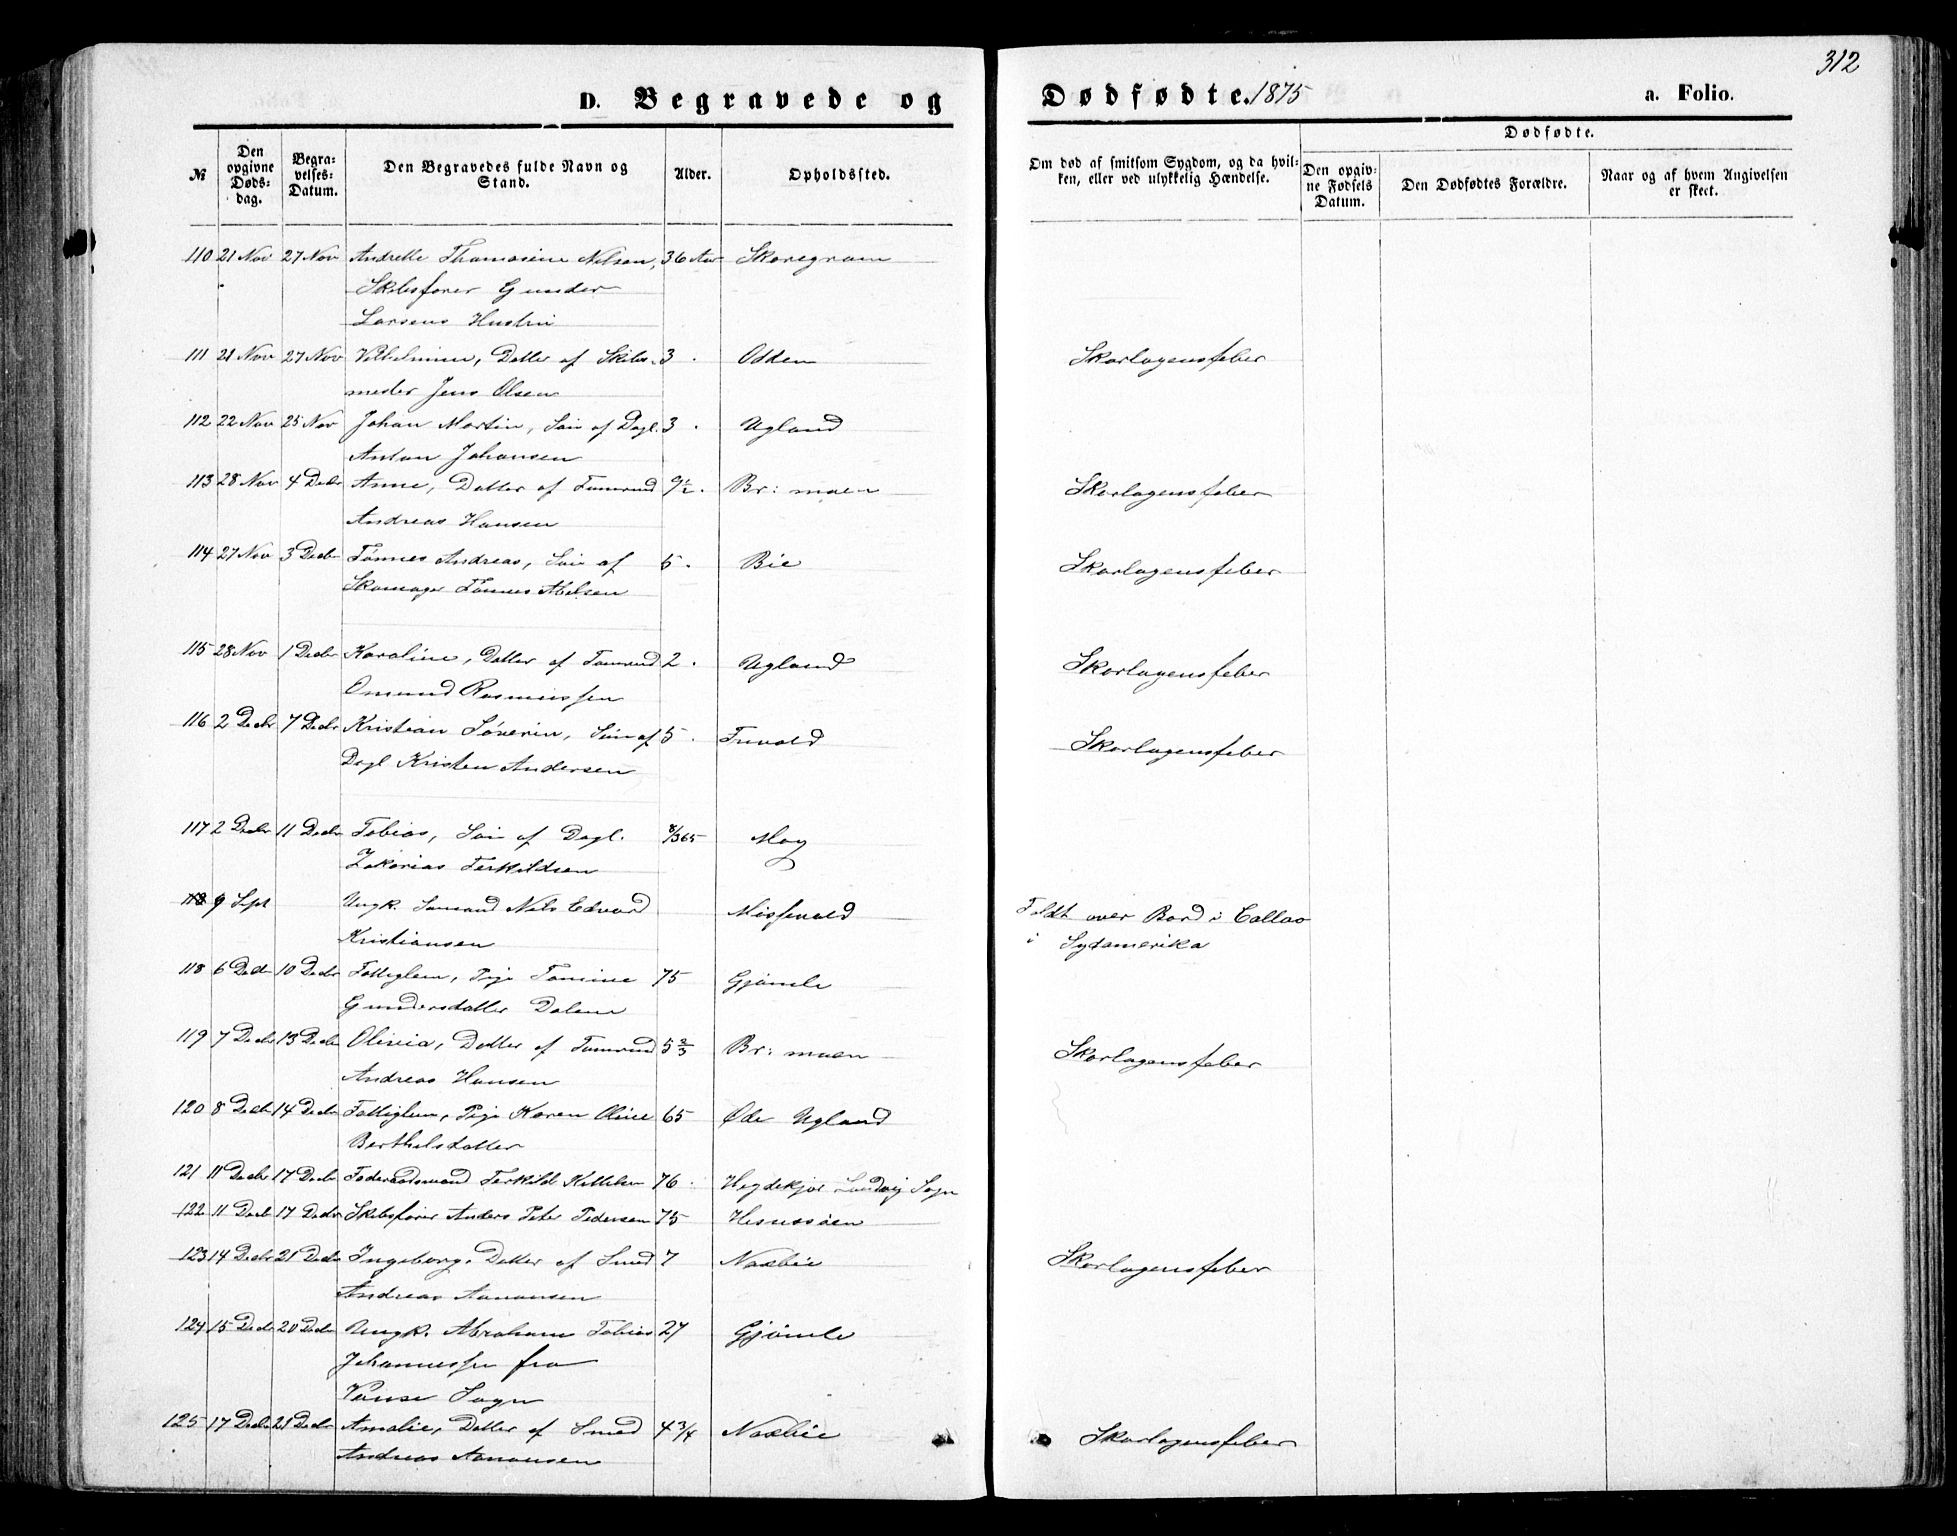 312
D. Begravede og Dødfødte. 1875 a. Folio.
№
Den opgivne Døds-dag.
Begra-velses-Datum.
Den Begravedes fulde Navn og Stand.
Alder.
Opholdssted.
Om død af smitsom Sygdom, og da hvil-ken, eller ved ulykkelig Hændelse.
Dødfødte.
Den opgiv-ne Fødsels Datum.
Den Dødfødtes Forældre.
Naar og af hvem Angivelsen er skeet.
110 21 Nov 27 Nov Andrette Thomasine Nilsen, 36 Aar Skoregrøm
Skibsfører Gunder
Larsens Hustru
111 21 Nov 27 Nov Vilhelmine, Datter af Skibs- 3 Odden Skarlagensfeber
meder Jens Olsen
112 22 Nov 25 Nov Johan Martin, Søn af Dagl. 3 Ugland
Anton Johansen
113 28 Nov 4 Decbr Anne, Datter af Tømmd 9½ Br: moen Skarlagensfeber
Andreas Hansen
114 27 Nov 3 Decbr Tønnes Andreas, Søn af 5 Bie Skarlagensfeber
Skomager Tønnes Abelsen
115 28 Nov 1 Decbr Karoline, Datter af Tømmd 2 Ugland Skarlagensfeber
Omund Rasmussen
116 2 Decbr 7 Decbr Kristian Søverin, Søn af 5 Skarlagensfeber
Dagl Kristen Andersen
117 2 Decbr 11 Decbr Tobias, Søn af Dagl. 8/365 Moy
Zakarias Terkildsen
9 Sept Ungk. Sømand Nils Edvard Mosfevold Faldt over Bord i Callao
Kristiansen i Sydamerika
118 6 Decbr 10 Decbr Fattiglem, Pige Tomine 75 Gjømle
Gundersdatter Dalen
119 7 Decbr 13 Decbr Olivia, Datter af Tømmd 5⅔ Br: moen Skarlagensfeber
Andreas Hansen
120 8 Decbr 14 Decbr Fattiglem, Pige Karen Oline 65 Øde Ugland
Berthelsdatter
121 11 Decbr 17 Decbr Føderaadsmand Terkild Kittelsen 76 Landvig Sogn
122 11 Decbr 17 Decbr Skibsfører Anders Peter Pedersen 75 Hesnesøen
123 14 Decbr 21 Decbr Ingeborg, Datter af Smed 7 Naxbie Skarlagensfeber
Andreas Aanonsen
124 15 Decbr 20 Decbr Ungk. Abraham Tobias 27 Gjømle
Johannessen fra
Vanse Sogn
125 17 Decbr 21 Decbr Amalie, Datter af Smed 4¾ Naxbie Skarlagensfeber
Andreas Aanonsen